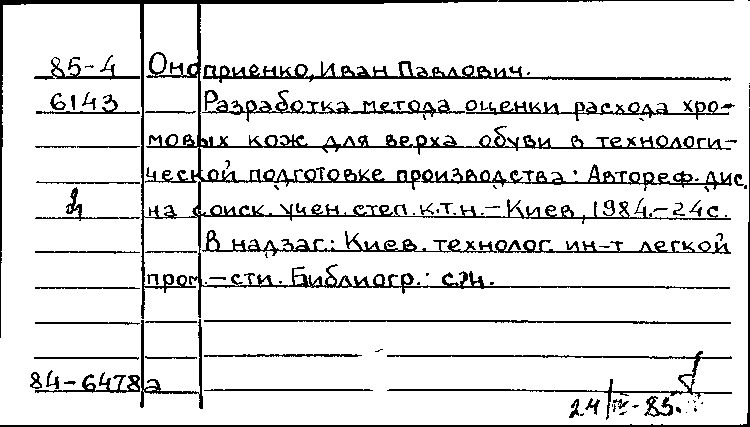 85-4 Оноприенко, Иван Павлович.
6143 Разработка метода оценки расхода хро-
мовых кож для верха обуви в технологи-
ческой подготовке производства: Автореф. дис.
на соиск. учен. степ. к.т.н. - Киев, 1984. - 24 с.
В надзаг.: Киев. технолог. ин-т легкой
пром.-сти. Библиогр.: с.
84-6478а
24/IV-85.